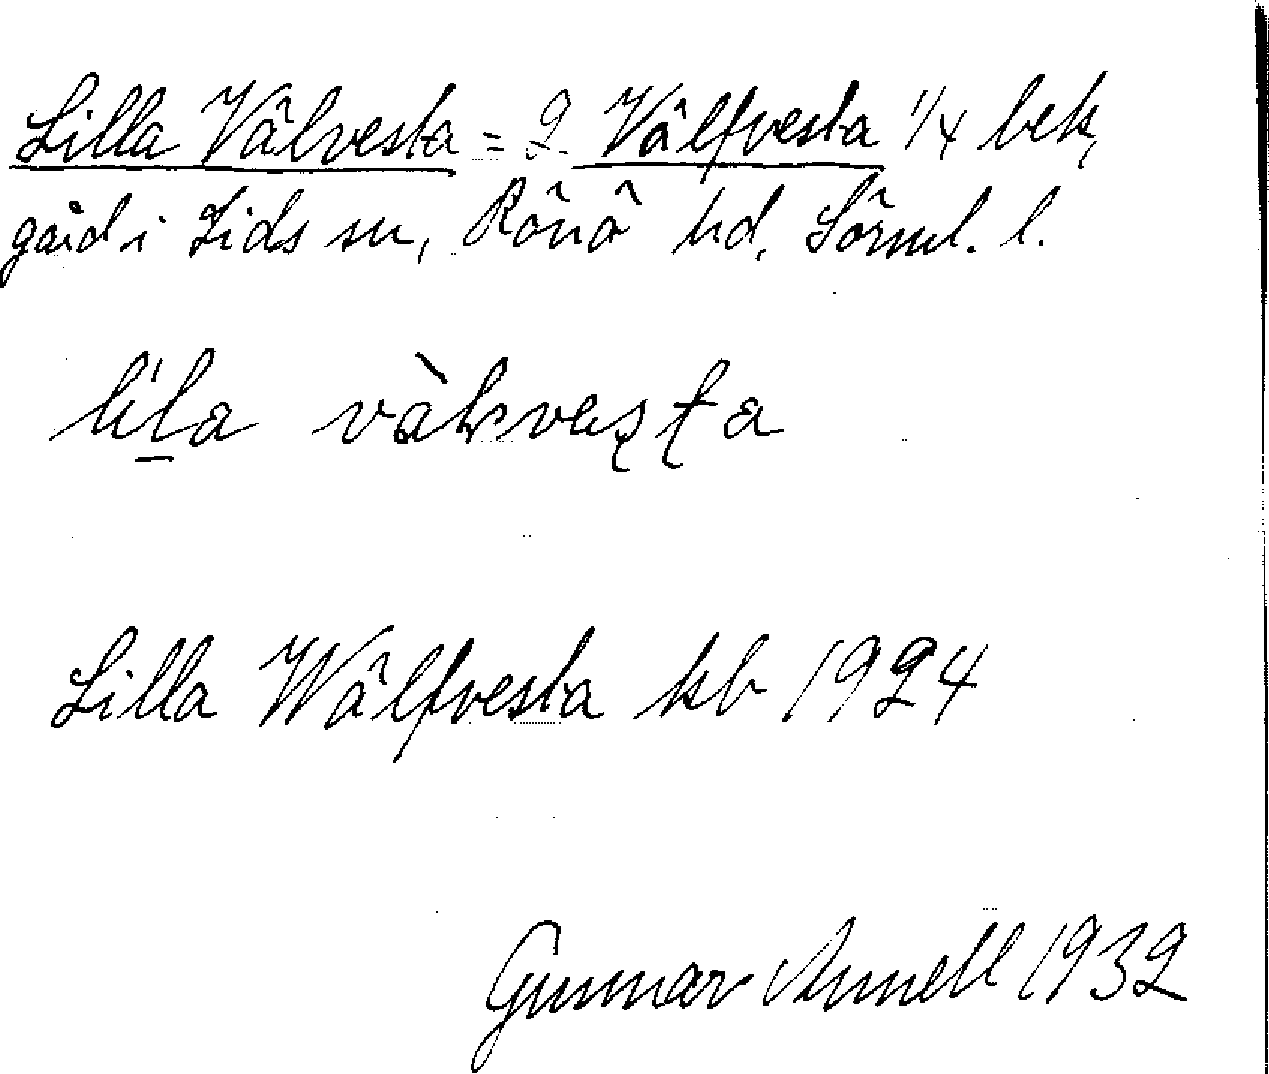 Lilla Välvesta = 2 Välfvesta 1/4 bek,
gård i Lids sn, Rönö hd, Sörml. l.
Lilla Wälfvesta kb 1924
Gunnar Annell 1932